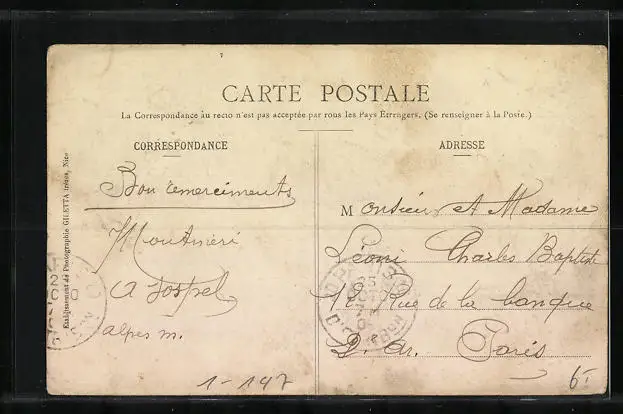 CARTE POSTALE
La Correspondance au recto n'est pas acceptée par tous les Pays Étrangers. (Se renseigner à la Poste.)
CORRESPONDANCE
ADRESSE
Etablissement de Photographie GILETTA frères, Nice
Bon remerciments
A Sospel
alpes m.
Monsieur et Madame
Léoni Charles Baptiste
18 Rue de la banque
Paris
1-147
6,-